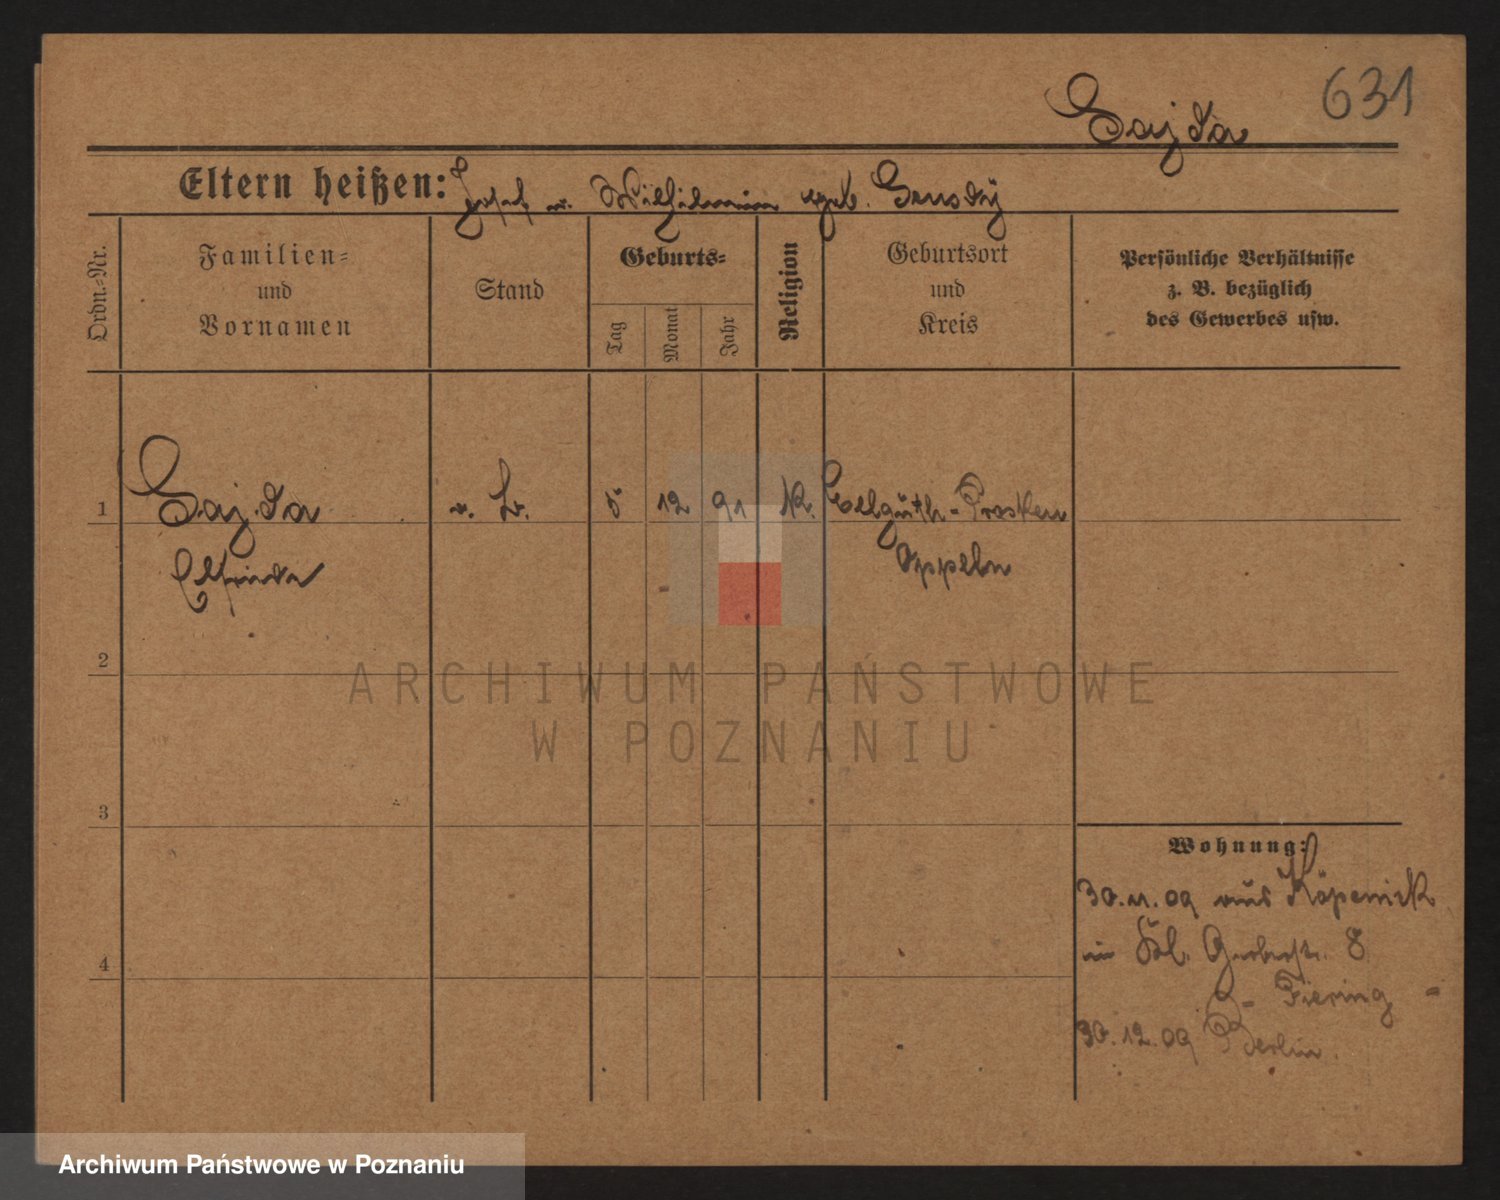 631
Gajda
Eltern heißen: Josef u. Wilhelmine geb.
Ordn.-Nr.
Familien-
und
Vornamen
Stand
Geburts-
Tag
Monat
Jahr
Religion
Geburtsort
und
Kreis
Persönliche Verhältnisse
z. B. bezüglich
des Gewerbes usw.
1
Gajda
Elfriede
5
12
91
K.
Ellguth-Proskau
Oppeln
2
ARCHIWUM PAŃSTWOWE
W POZNANIU
3
4
Wohnung:
30.11.09 aus Köpenick
in Gerberstr. 8
- Fiering -
30.12.09 Berlin.
Archiwum Państwowe w Poznaniu